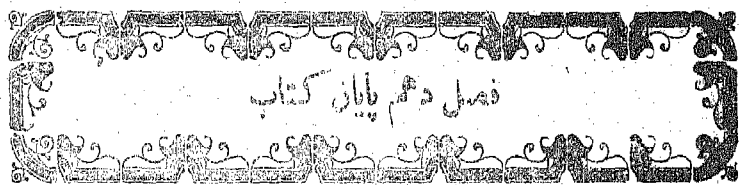 فصل دهم پایان کتاب